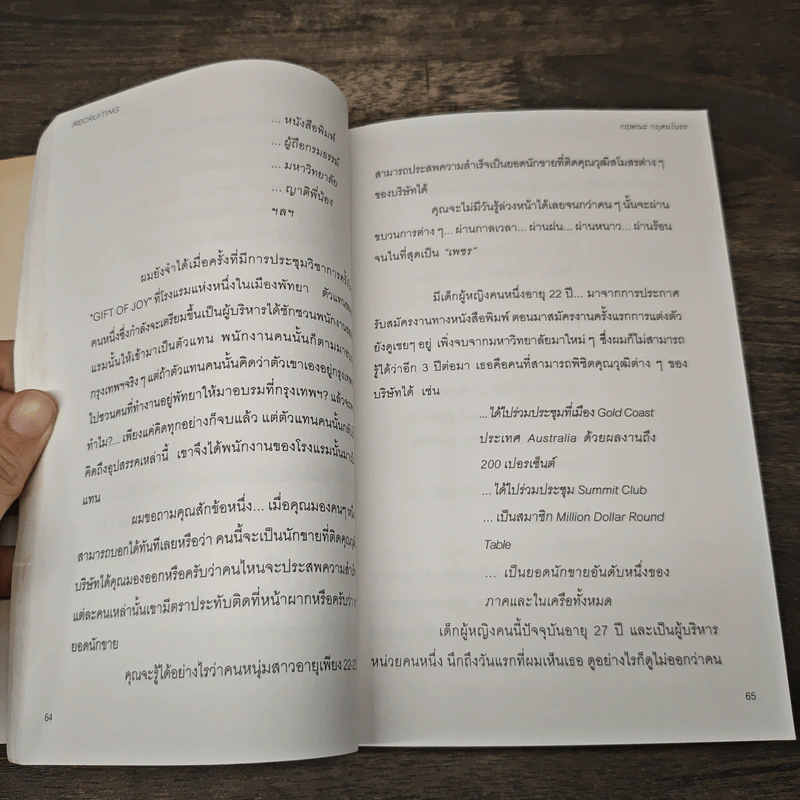 RECRUITING
... หนังสือพิมพ์
... ผู้ถือกรมธรรม์
... มหาวิทยาลัย
... ญาติพี่น้อง
ฯลฯ
ผมยังจำได้เมื่อครั้งที่มีการประชุมวิชาการครั้ง
"GIFT OF JOY" ที่โรงแรมแห่งหนึ่งในเมืองพัทยา ตัวแทน
คนหนึ่งซึ่งกำลังจะเตรียมขึ้นเป็นผู้บริหารได้ชักชวนพนักงานของ
แรมนั้นให้เข้ามาเป็นตัวแทน พนักงานคนนั้นก็ตามมา
กรุงเทพฯจริง ๆ แต่ถ้าตัวแทนคนนั้นคิดว่าตัวเขาเองอยู่กรุงเทพฯ
ไปชวนคนที่ทำงานอยู่พัทยาให้มาอบรมที่กรุงเทพฯ? แล้วจะ
ทำไม?... เพียงแค่คิดทุกอย่างก็จบแล้ว แต่ตัวแทนคนนั้น
คิดถึงอุปสรรคเหล่านี้ เขาจึงได้พนักงานของโรงแรมนั้นมา
แทน
ผมขอถามคุณสักข้อหนึ่ง... เมื่อคุณมองคนๆ
สามารถบอกได้ทันทีเลยหรือว่า คนนี้จะเป็นนักขายที่ติดคุณวุฒิ
บริษัทได้คุณมองออกหรือครับว่าคนไหนจะประสพความสำเร็จ
แต่ละคนเหล่านั้นเขามีตราประทับติดที่หน้าผากหรือครับว่า
ยอดนักขาย
คุณจะรู้ได้อย่างไรว่าคนหนุ่มสาวอายุเพียง 22-
64
กฤษณะ กฤตมโนรถ
สามารถประสพความสำเร็จเป็นยอดนักขายที่ติดคุณวุฒิสโมสรต่าง ๆ
ของบริษัทได้
คุณจะไม่มีวันรู้ล่วงหน้าได้เลยจนกว่าคน ๆ นั้นจะผ่าน
ขบวนการต่าง ๆ... ผ่านกาลเวลา... ผ่านฝน... ผ่านหนาว... ผ่านร้อน
จนในที่สุดเป็น "เพชร"
มีเด็กผู้หญิงคนหนึ่งอายุ 22 ปี... มาจากการประกาศ
รับสมัครงานทางหนังสือพิมพ์ ตอนมาสมัครงานครั้งแรกการแต่งตัว
ยังดูเชยๆ อยู่ เพิ่งจบจากมหาวิทยาลัยมาใหม่ ๆ ซึ่งผมก็ไม่สามารถ
รู้ได้ว่าอีก 3 ปีต่อมา เธอคือคนที่สามารถพิชิตคุณวุฒิต่าง ๆ ของ
บริษัทได้ เช่น
...ได้ไปร่วมประชุมที่เมือง Gold Coast
ประเทศ Australia ด้วยผลงานถึง
200 เปอร์เซ็นต์
... ได้ไปร่วมประชุม Summit Club
...เป็นสมาชิก Million Dollar Round
Table
... เป็นยอดนักขายอันดับหนึ่งของ
ภาคและในเครือทั้งหมด
เด็กผู้หญิงคนนี้ปัจจุบันอายุ 27 ปี และเป็นผู้บริหาร
หน่วยคนหนึ่ง นึกถึงวันแรกที่ผมเห็นเธอ ดูอย่างไรก็ดูไม่ออกว่าคน
65